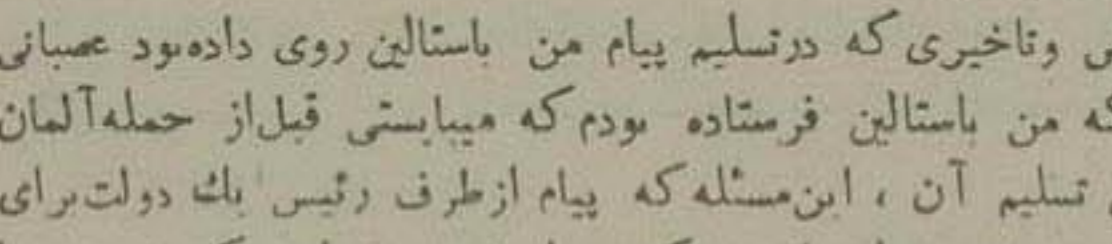 وتاخیری که درتسلیم پیام من باستالین روی داده بود عصبانی
من باستالین فرستاده بودم که میبایستی قبل از حمله آلمان
تسلیم آن ، این مسئله که پیام ازطرف رئیس یك دولت برای